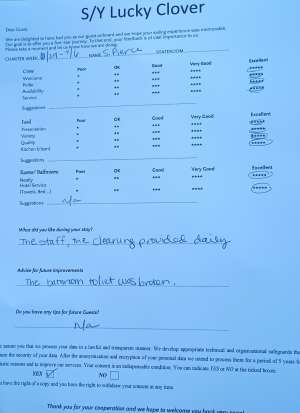 S/Y Lucky Clover
Dear Guest,
We are delighted to have had you as our guest onboard and we hope your sailing experience was memorable.
Our goal is to offer you a five-star journey. To that end, your feedback is of vital importance to us.
Please take a moment and let us know how we are doing.
CHARTER WEEK: NAME: S. Pierce
Crew Poor OK Good Very Good Excellent
Welcome * ** *** **** *****
Polite * ** *** **** *****
Availability * ** *** **** *****
Service * ** *** **** *****
Suggestions
Food Poor OK Good Very Good Excellent
Presentation * ** *** **** *****
Variety * ** *** **** *****
Quality * ** *** **** *****
Kitchen Island * ** *** **** *****
Suggestions
Rooms/ Bathrooms Poor OK Good Very Good Excellent
Neatly * ** *** **** *****
Hotel Service
(Towels, Bed...) * ** *** **** *****
Suggestions n/a
What did you like during your stay?
The staff, the cleaning provided daily
Advice for future improvements
The bathroom toilet was broken.
Do you have any tips for future Guests?
n/a
assure you that we process your data in a lawful and transparent manner. We develop appropriate technical and organisational safeguards
the security of your data. After the anonymization and encryption of your personal data we intend to process them for a period of 5 years
reasons and to improve our services. Your consent is an indispensable condition. You can indicate YES or NO at the ticked boxes:
YES NO
have the right of a copy and you have the right to withdraw your consent at any time.
Thank you for your cooperation and we hope to welcome you back